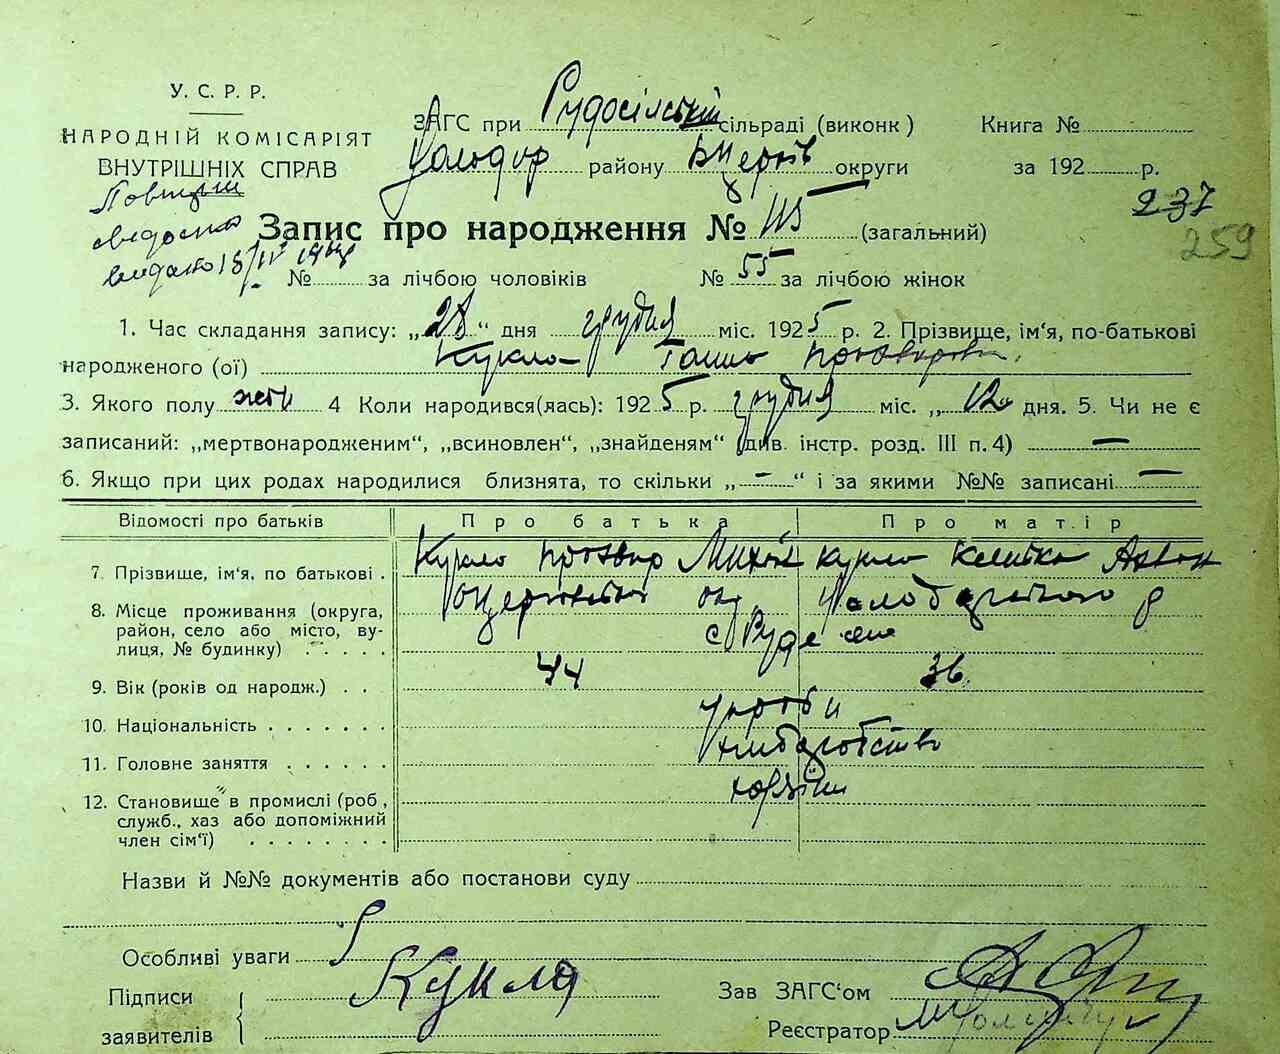 У. С. Р. Р.
НАРОДНІЙ КОМІСАРІЯТ
ВНУТРІШНІХ СПРАВ
ЗАГС при Рудосільській сільраді (виконк)
району округи
Книга №
за 192 р.
237
259
видано 18/IV
Запис про народження № 115 (загальний)
№ за лічбою чоловіків № 55 за лічбою жінок
1. Час складання запису: „28“ дня грудня міс. 1925 р. 2. Прізвище, ім'я, по-батькові
народженого (ої) Кукло
3. Якого полу жін 4 Коли народився(лась): 1925 р. грудня міс. „12 дня. 5. Чи не є
записаний: „мертвонародженим“, „всиновлен“, „знайденям“ (див. інстр. розд. III п. 4) —
6. Якщо при цих родах народилися близнята, то скільки „—“ і за якими №№ записані —
Відомості про батьків Про батька Про матір
7. Прізвище, ім'я, по батькові . Кукло Кукло
8. Місце проживання (округа,
район, село або місто, ву-
лиця, № будинку) . . . . .
9. Вік (років од народж.) . . 44 36
10. Національність . . . . . . .
11. Головне заняття . . . . . . хліборобство
12. Становище в промислі (роб.,
служб., хаз або допоміжний
член сім'ї) . . . . . . . .
Назви й №№ документів або постанови суду
Особливі уваги
Підписи
заявителів
Кукла
Зав ЗАГС'ом
Реєстратор